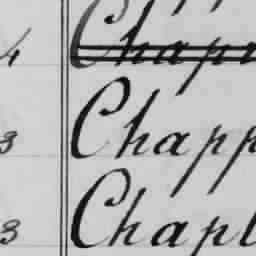 4 Chapp
3 Chapp
3 Chapl